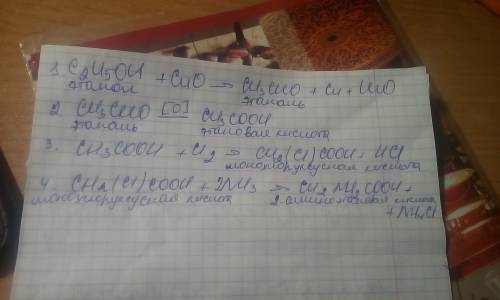 1. C2H5OH + CuO → CH3CHO + Cu + H2O
этанол этаналь
2. CH3CHO [O] CH3COOH
этаналь этановая кислота
3. CH3COOH + Cl2 → CH2(Cl)COOH + HCl
монохлоруксусная кислота
4. CH2(Cl)COOH + 2NH3 → CH2NH2COOH +
монохлоруксусная кислота 2-аминоэтановая кислота
+ NH4Cl